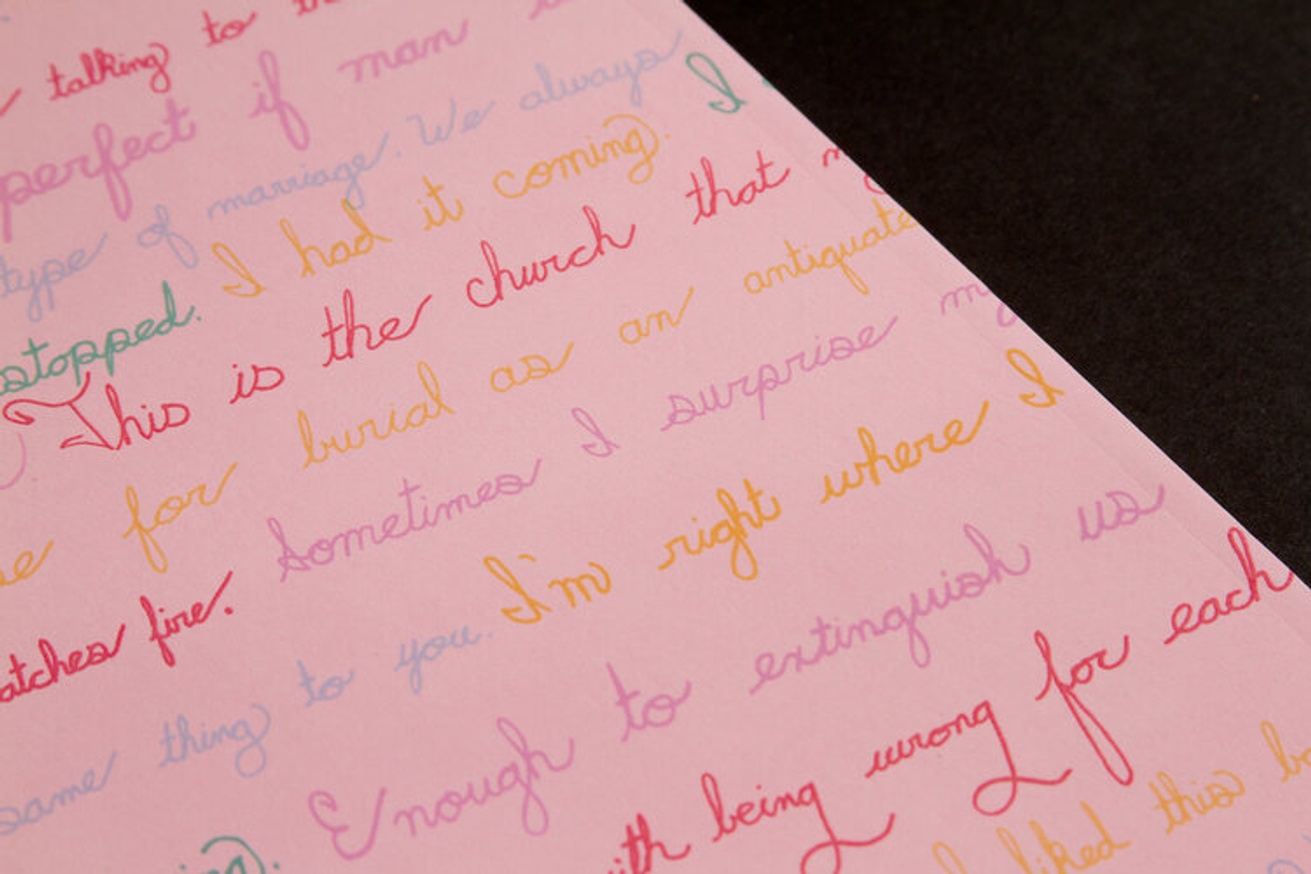 talking to
perfect if man
type of marriage. We always
stopped. I had it coming. I
This is the church that
for burial as an
fire. Sometimes I surprise
same thing to you. I'm right where I
Enough to extinguish us
being wrong for each
liked this